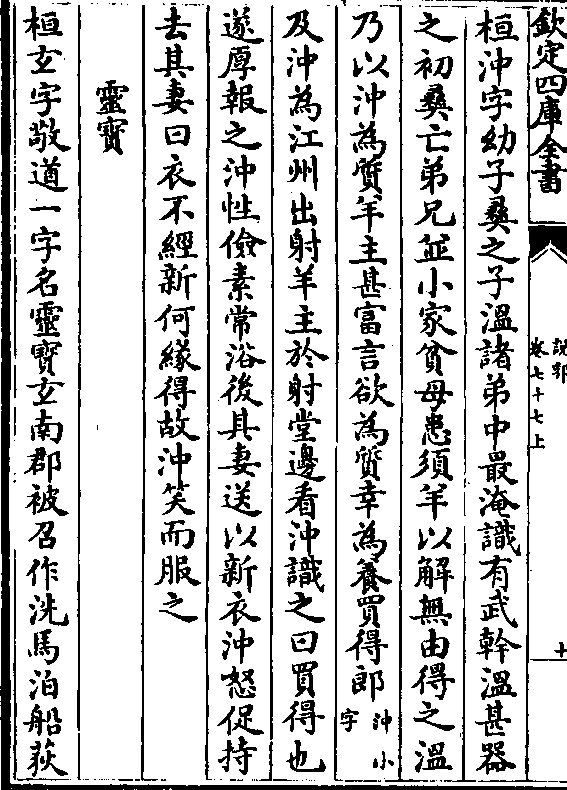 欽定四庫全書
說郛
卷七十七上
十
桓沖字幼子彝之子溫諸弟中最淹識有武幹溫甚器
之初彝亡弟兄並小家貧母患須羊以解無由得之溫
乃以沖為質羊主甚富言欲為質幸為養買得郎沖小字
及沖為江州出射羊主於射堂邊看沖識之曰買得也
遂厚報之沖性儉素常浴後其妻送以新衣沖怒促持
去其妻曰衣不經新何緣得故沖笑而服之
靈寶
桓玄字敬道一字名靈寶玄南郡被召作洗馬泊船荻